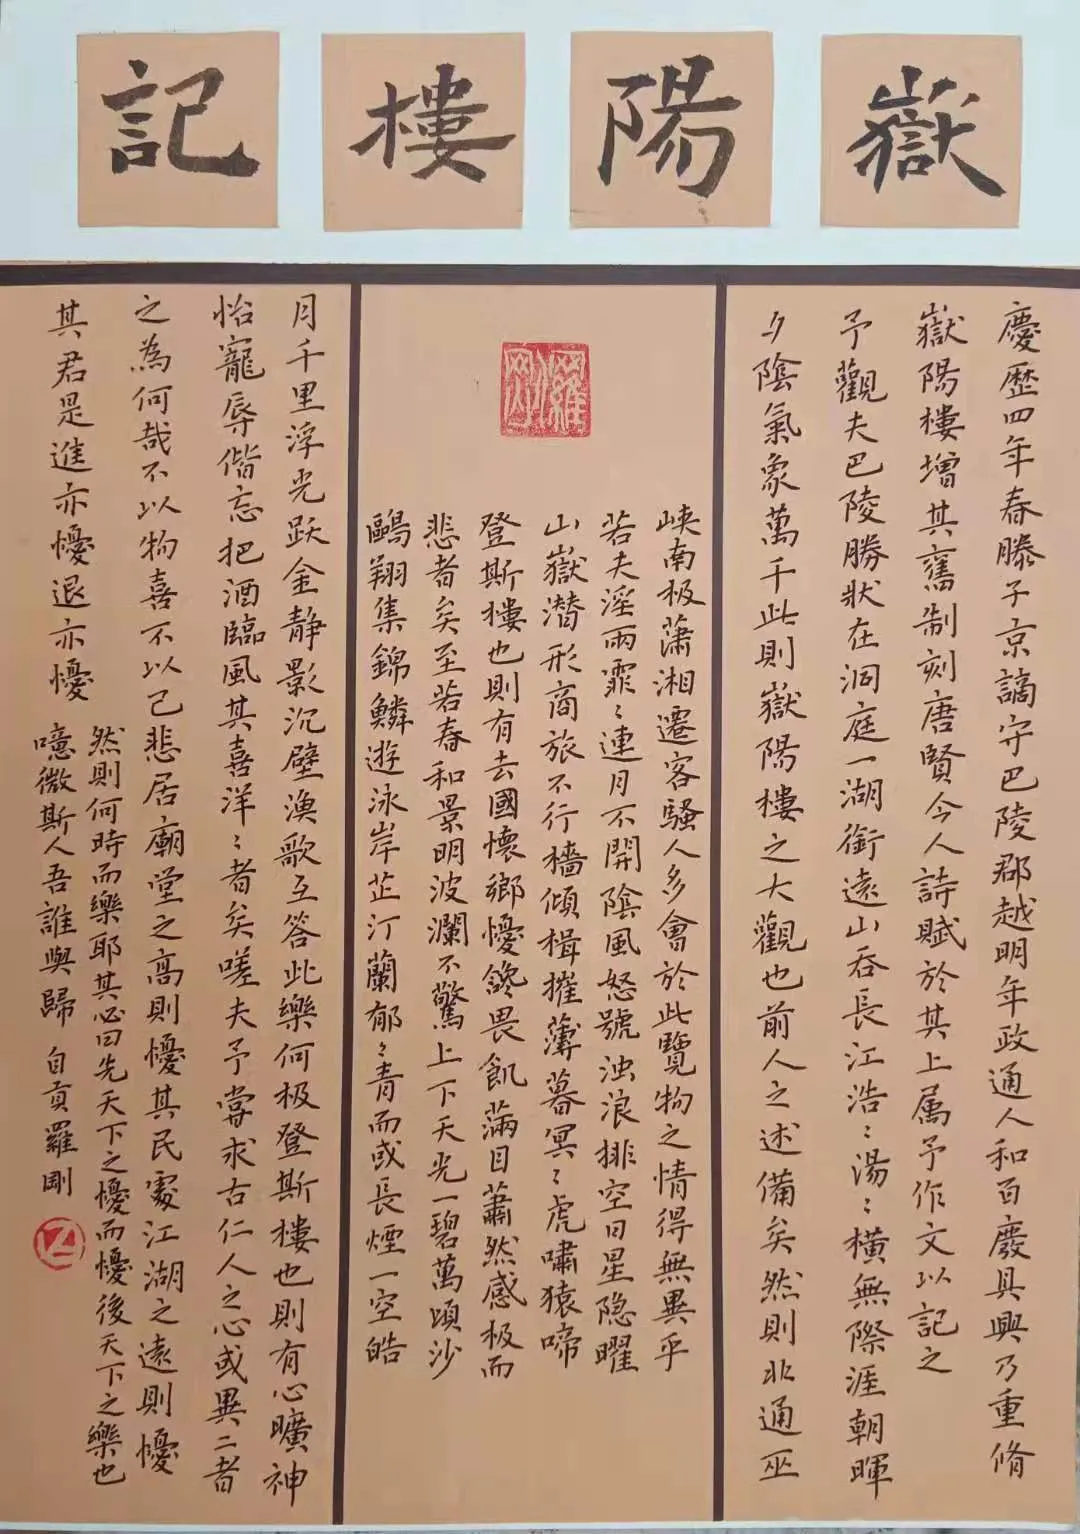 嶽陽樓記
慶歷四年春滕子京謫守巴陵郡越明年政通人和百廢具興乃重脩
嶽陽樓增其舊制刻唐賢今人詩賦於其上属予作文以記之
予觀夫巴陵勝狀在洞庭一湖銜遠山吞長江浩〻湯〻橫無際涯朝暉
夕陰氣象萬千此則嶽陽樓之大觀也前人之述備矣然則北通巫
羅剛
峡南极萧湘遷客騷人多會於此覽物之情得無異乎
若夫淫雨霏〻連月不開陰風怒號浊浪排空日星隐曜
山嶽潜形商旅不行檣傾楫摧薄暮冥〻虎嘯猿啼
登斯樓也則有去國懷鄉憂讒畏飢滿目蕭然感极而
悲者矣至若春和景明波瀾不驚上下天光一碧萬頃沙
鷗翔集錦鱗遊泳岸芷汀蘭郁〻青而或長煙一空皓
月千里浮光跃金静影沉壁漁歌互答此樂何极登斯樓也則有心曠神
怡寵辱偕忘把酒臨風其喜洋〻者矣嗟夫予嘗求古仁人之心或異二者
之為何哉不以物喜不以己悲居廟堂之高則憂其民處江湖之遠則憂
其君是進亦憂退亦憂
然則何時而樂耶其心曰先天下之憂而憂後天下之樂也
噫微斯人吾誰與歸 自貢羅剛